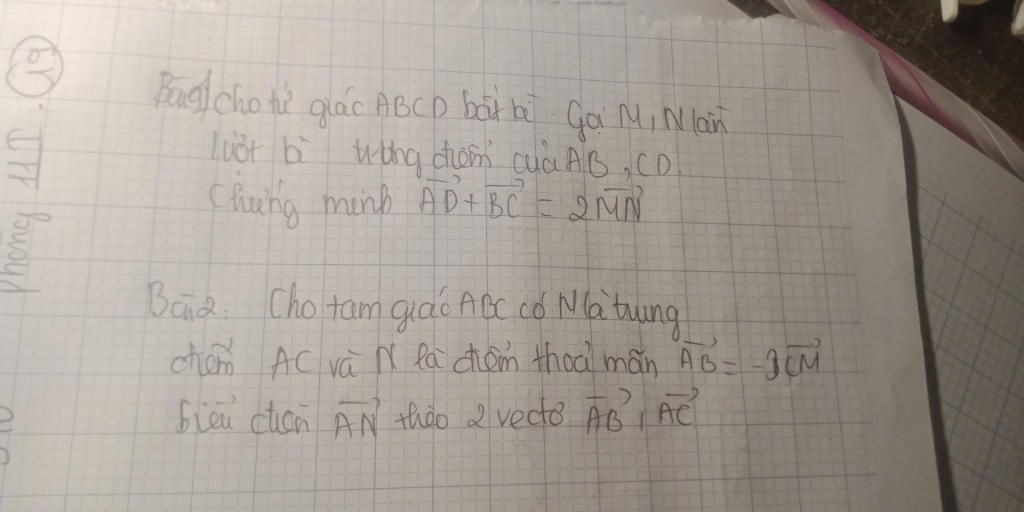 Bài 1 Cho tứ giác ABCD bất kì. Gọi M, N lần
lượt là trung điểm của AB, CD.
Chứng minh AD + BC = 2MN
Bài 2: Cho tam giác ABC có M là trung
điểm AC và N là điểm thoả mãn AB = -3CM
biểu diễn AN theo 2 vectơ AB, AC
Phòng 11T